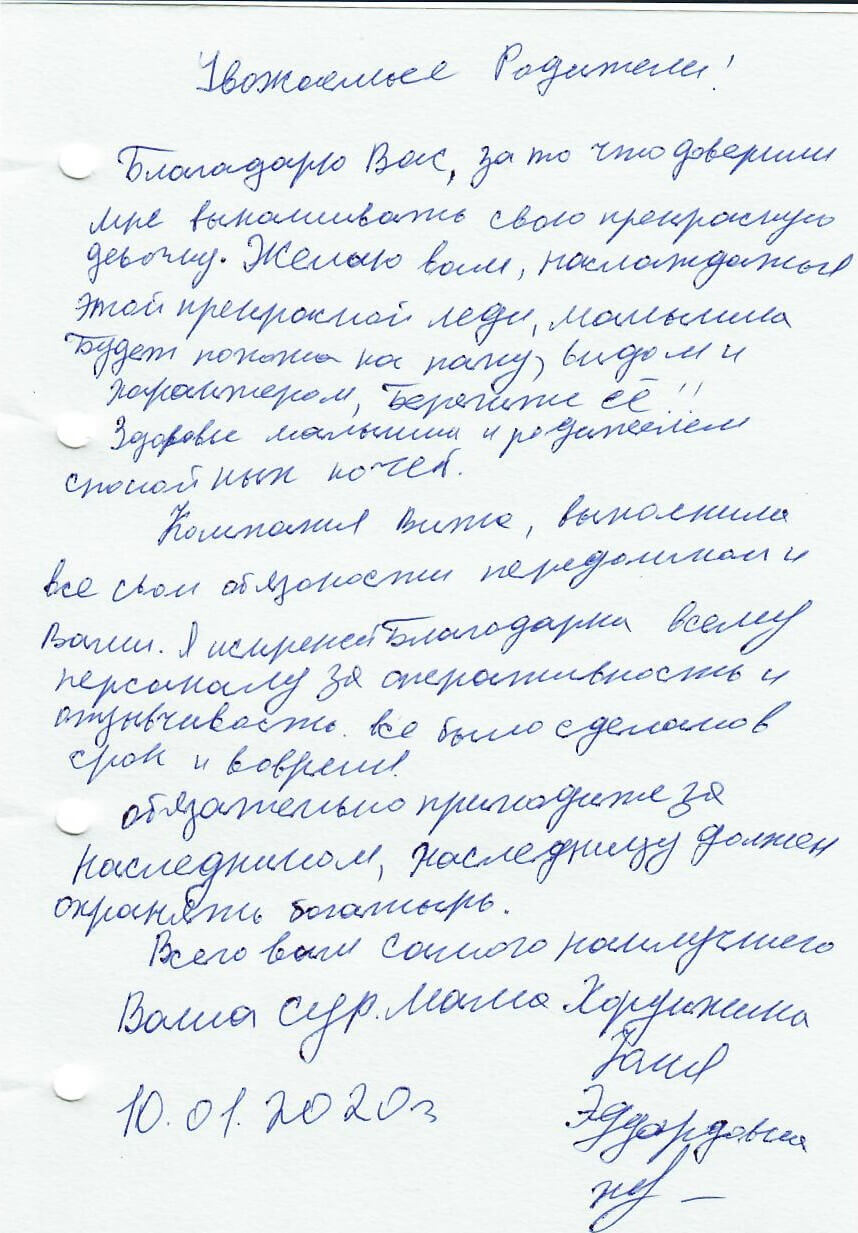 Уважаемые Родители!
Благадарю Вас, за то что доверили
мне вынашивать свою прекрасную
девочку. Желаю вам, наслаждаться
этой прекрасной леди, малышка
Будет похожа на папу, видом и
характером, Берегите её!!
Здоровье малышки и родителем
спокойных ночей.
Компания Вита, выполнила
все свои обязоности передомной и
Вами. Я искреней Благодарна всему
персоналу за оперативность и
отзывчивость. все было сделанов
срок и вовремя.
обязательно приходите за
наследником, наследницу должен
охранять богатырь.
Всего вам самого наилучшего
Ваша сур. мама
Таня
Эдуардовна
10.01.2020г